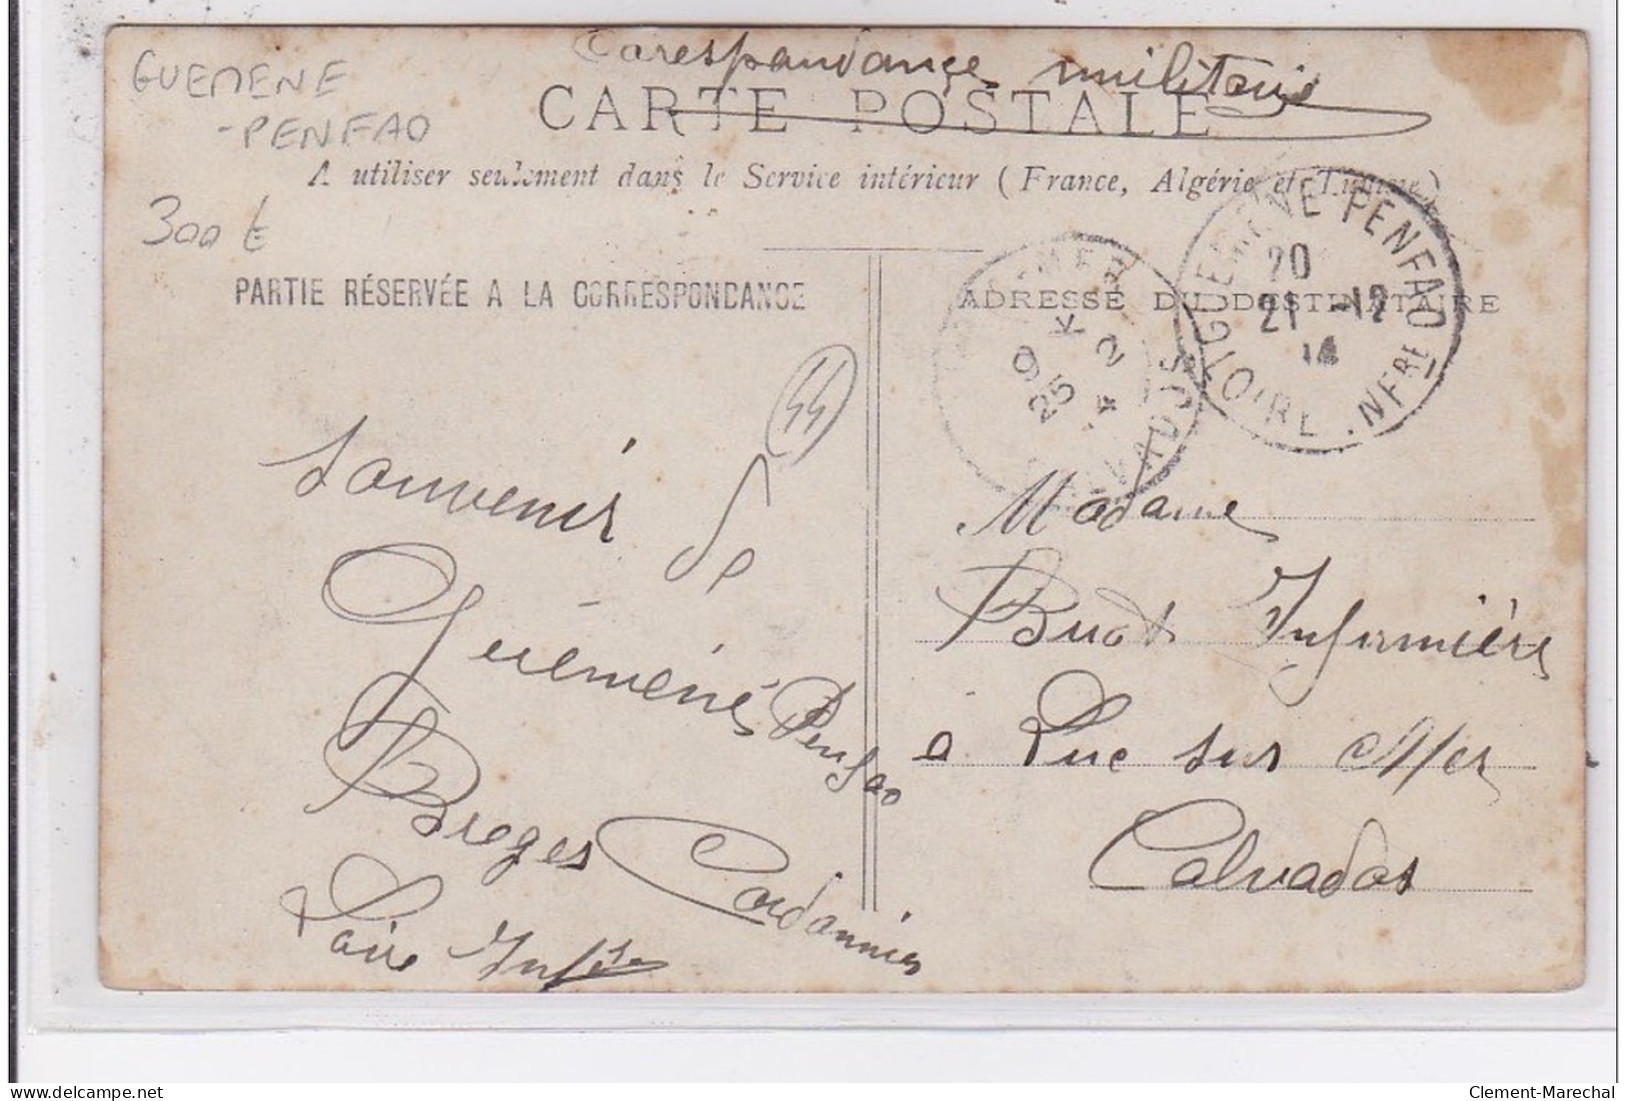 GUEMENE
-PENFAO
300 €
Corespondance militaire
CARTE POSTALE
A utiliser seulement dans le Service intérieur (France, Algérie et Tunisie)
PARTIE RÉSERVÉE A LA CORRESPONDANCE
ADRESSE DU DESTINATAIRE
GUEMENE PENFAO
20
21 -12
14
LOIRE INFRE
MER
9 2
25
CALVADOS
44
Souvenir de
Guéméné Penfao
Breges Cordonnier
Loire Infre
Madame
Buot Infirmière
a Luc sur Mer
Calvados
Clement-Marechal